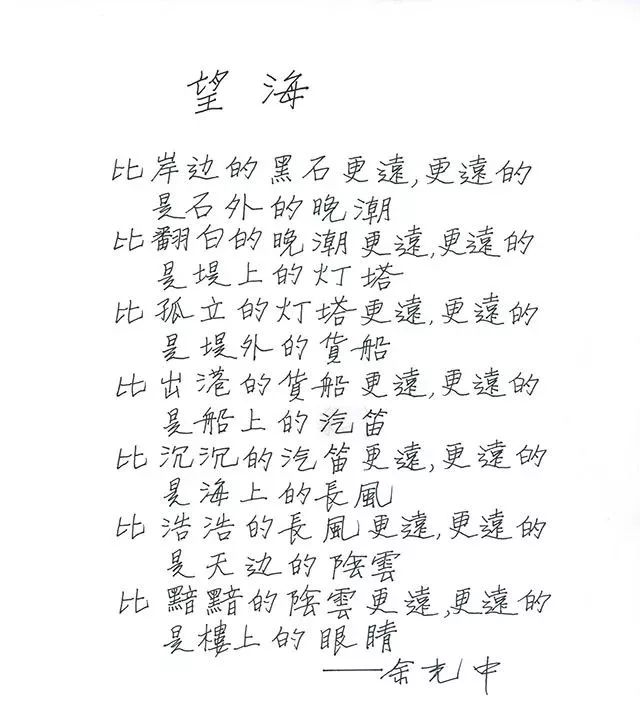 望海
比岸边的黑石更遠,更遠的
是石外的晚潮
比翻白的晚潮更遠,更遠的
是堤上的灯塔
比孤立的灯塔更遠,更遠的
是堤外的貨船
比出港的貨船更遠,更遠的
是船上的汽笛
比沉沉的汽笛更遠,更遠的
是海上的長風
比浩浩的長風更遠,更遠的
是天边的陰雲
比黯黯的陰雲更遠,更遠的
是樓上的眼睛
——余光中